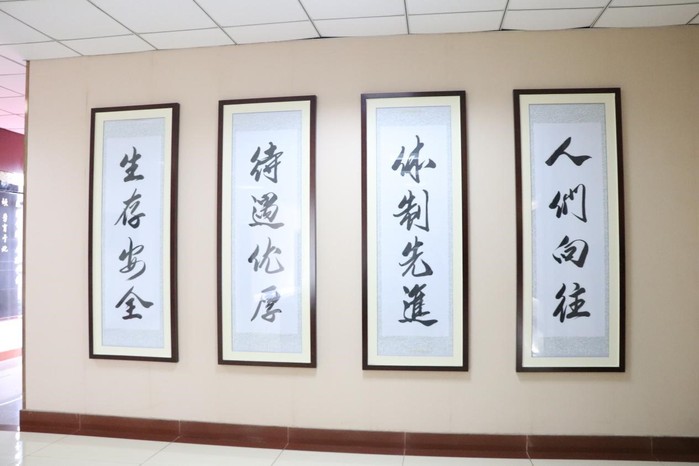 生存安全
待遇优厚
体制先進
人們向往